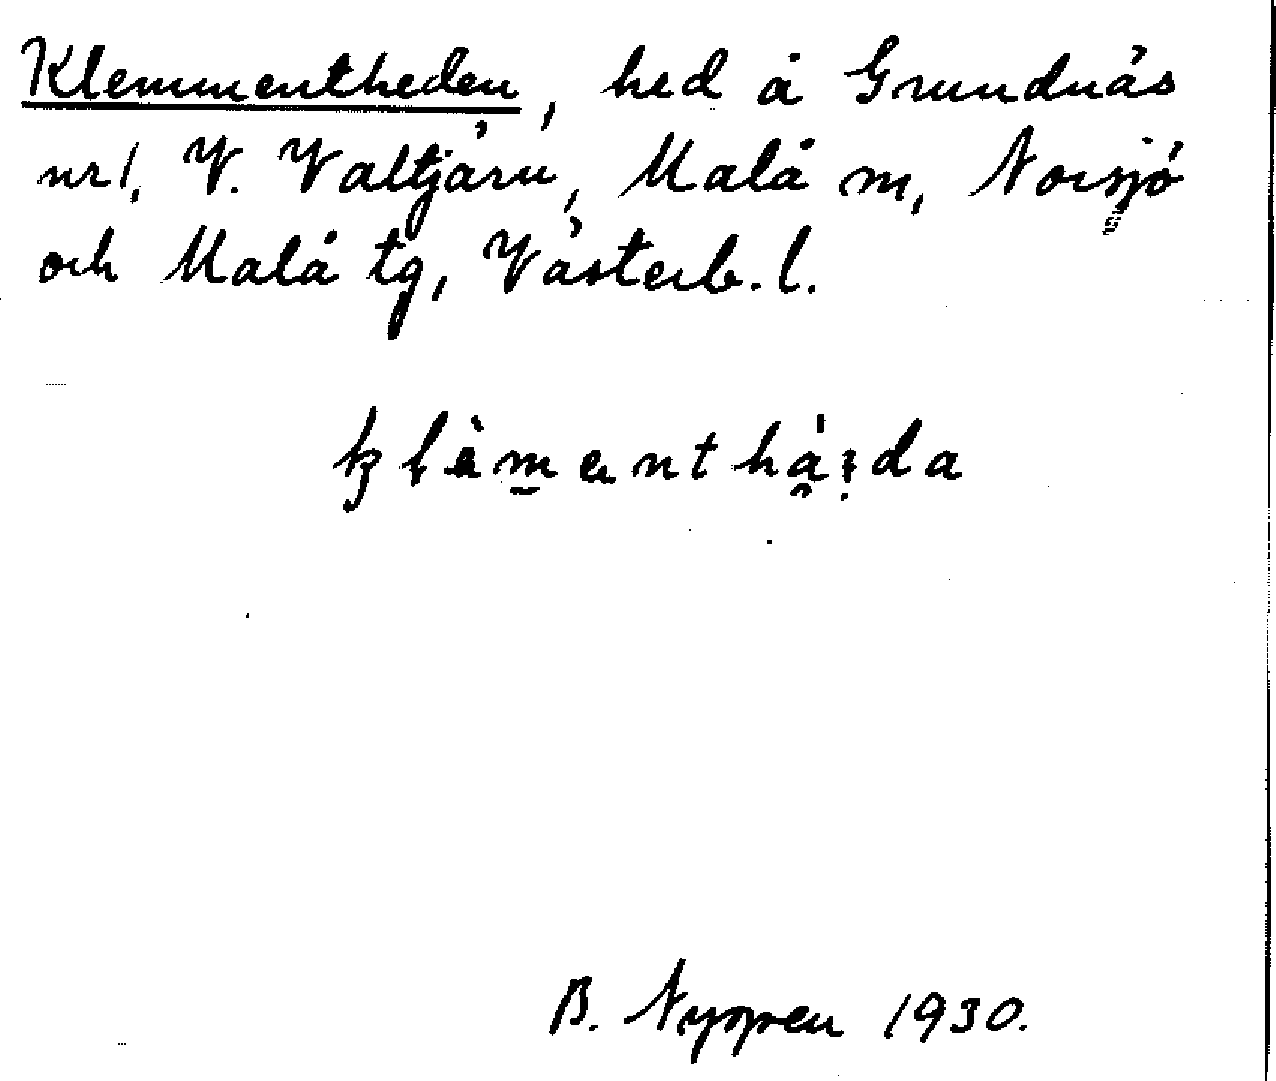 Klemmentheden, hed å Grundnäs
nr 1, V. Valtjärn, Malå m, Norsjö
och Malå tg, Västerb. l.
B. Nyopen 1930.